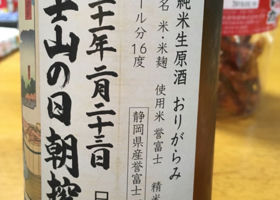 純米生原酒 おりがらみ
名 米・米麹 使用米 誉富士 精米
ール分16度
静岡県産誉富士
二十一年二月二十三日
士山の日朝搾